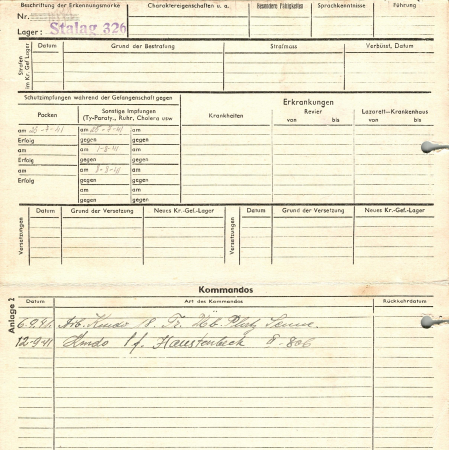 Beschriftung der Erkennungsmarke
Nr.
Lager: Stalag 326
Charaktereigenschaften u. a.
Besondere Fähigkeiten
Sprachkenntnisse
Führung
Strafen im Kr. Gef. Lager
Datum Grund der Bestrafung Strafmass Verbüsst, Datum
Schutzimpfungen während der Gefangenschaft gegen
Pocken
Sonstige Impfungen
(Ty-Paraty., Ruhr, Cholera usw
Erkrankungen
Krankheiten
Revier
von bis
Lazarett—Krankenhaus
von bis
am 25-7-41 am 25-7-41 am
Erfolg gegen gegen
am am 1-8-41 am
Erfolg gegen gegen
am am 8-8-41 am
Erfolg gegen gegen
am am
gegen gegen
Versetzungen
Datum Grund der Versetzung Neues Kr.-Gef.-Lager
Versetzungen
Datum Grund der Versetzung Neues Kr.-Gef.-Lager
Kommandos
Anlage 2
Datum Art des Kommandos Rückkehrdatum
6.9.41. Arb. Kmdo 18. Tr. Üb. Platz Senne.
12-9-41 Kmdo 1 f. Haustenbeck 8-806